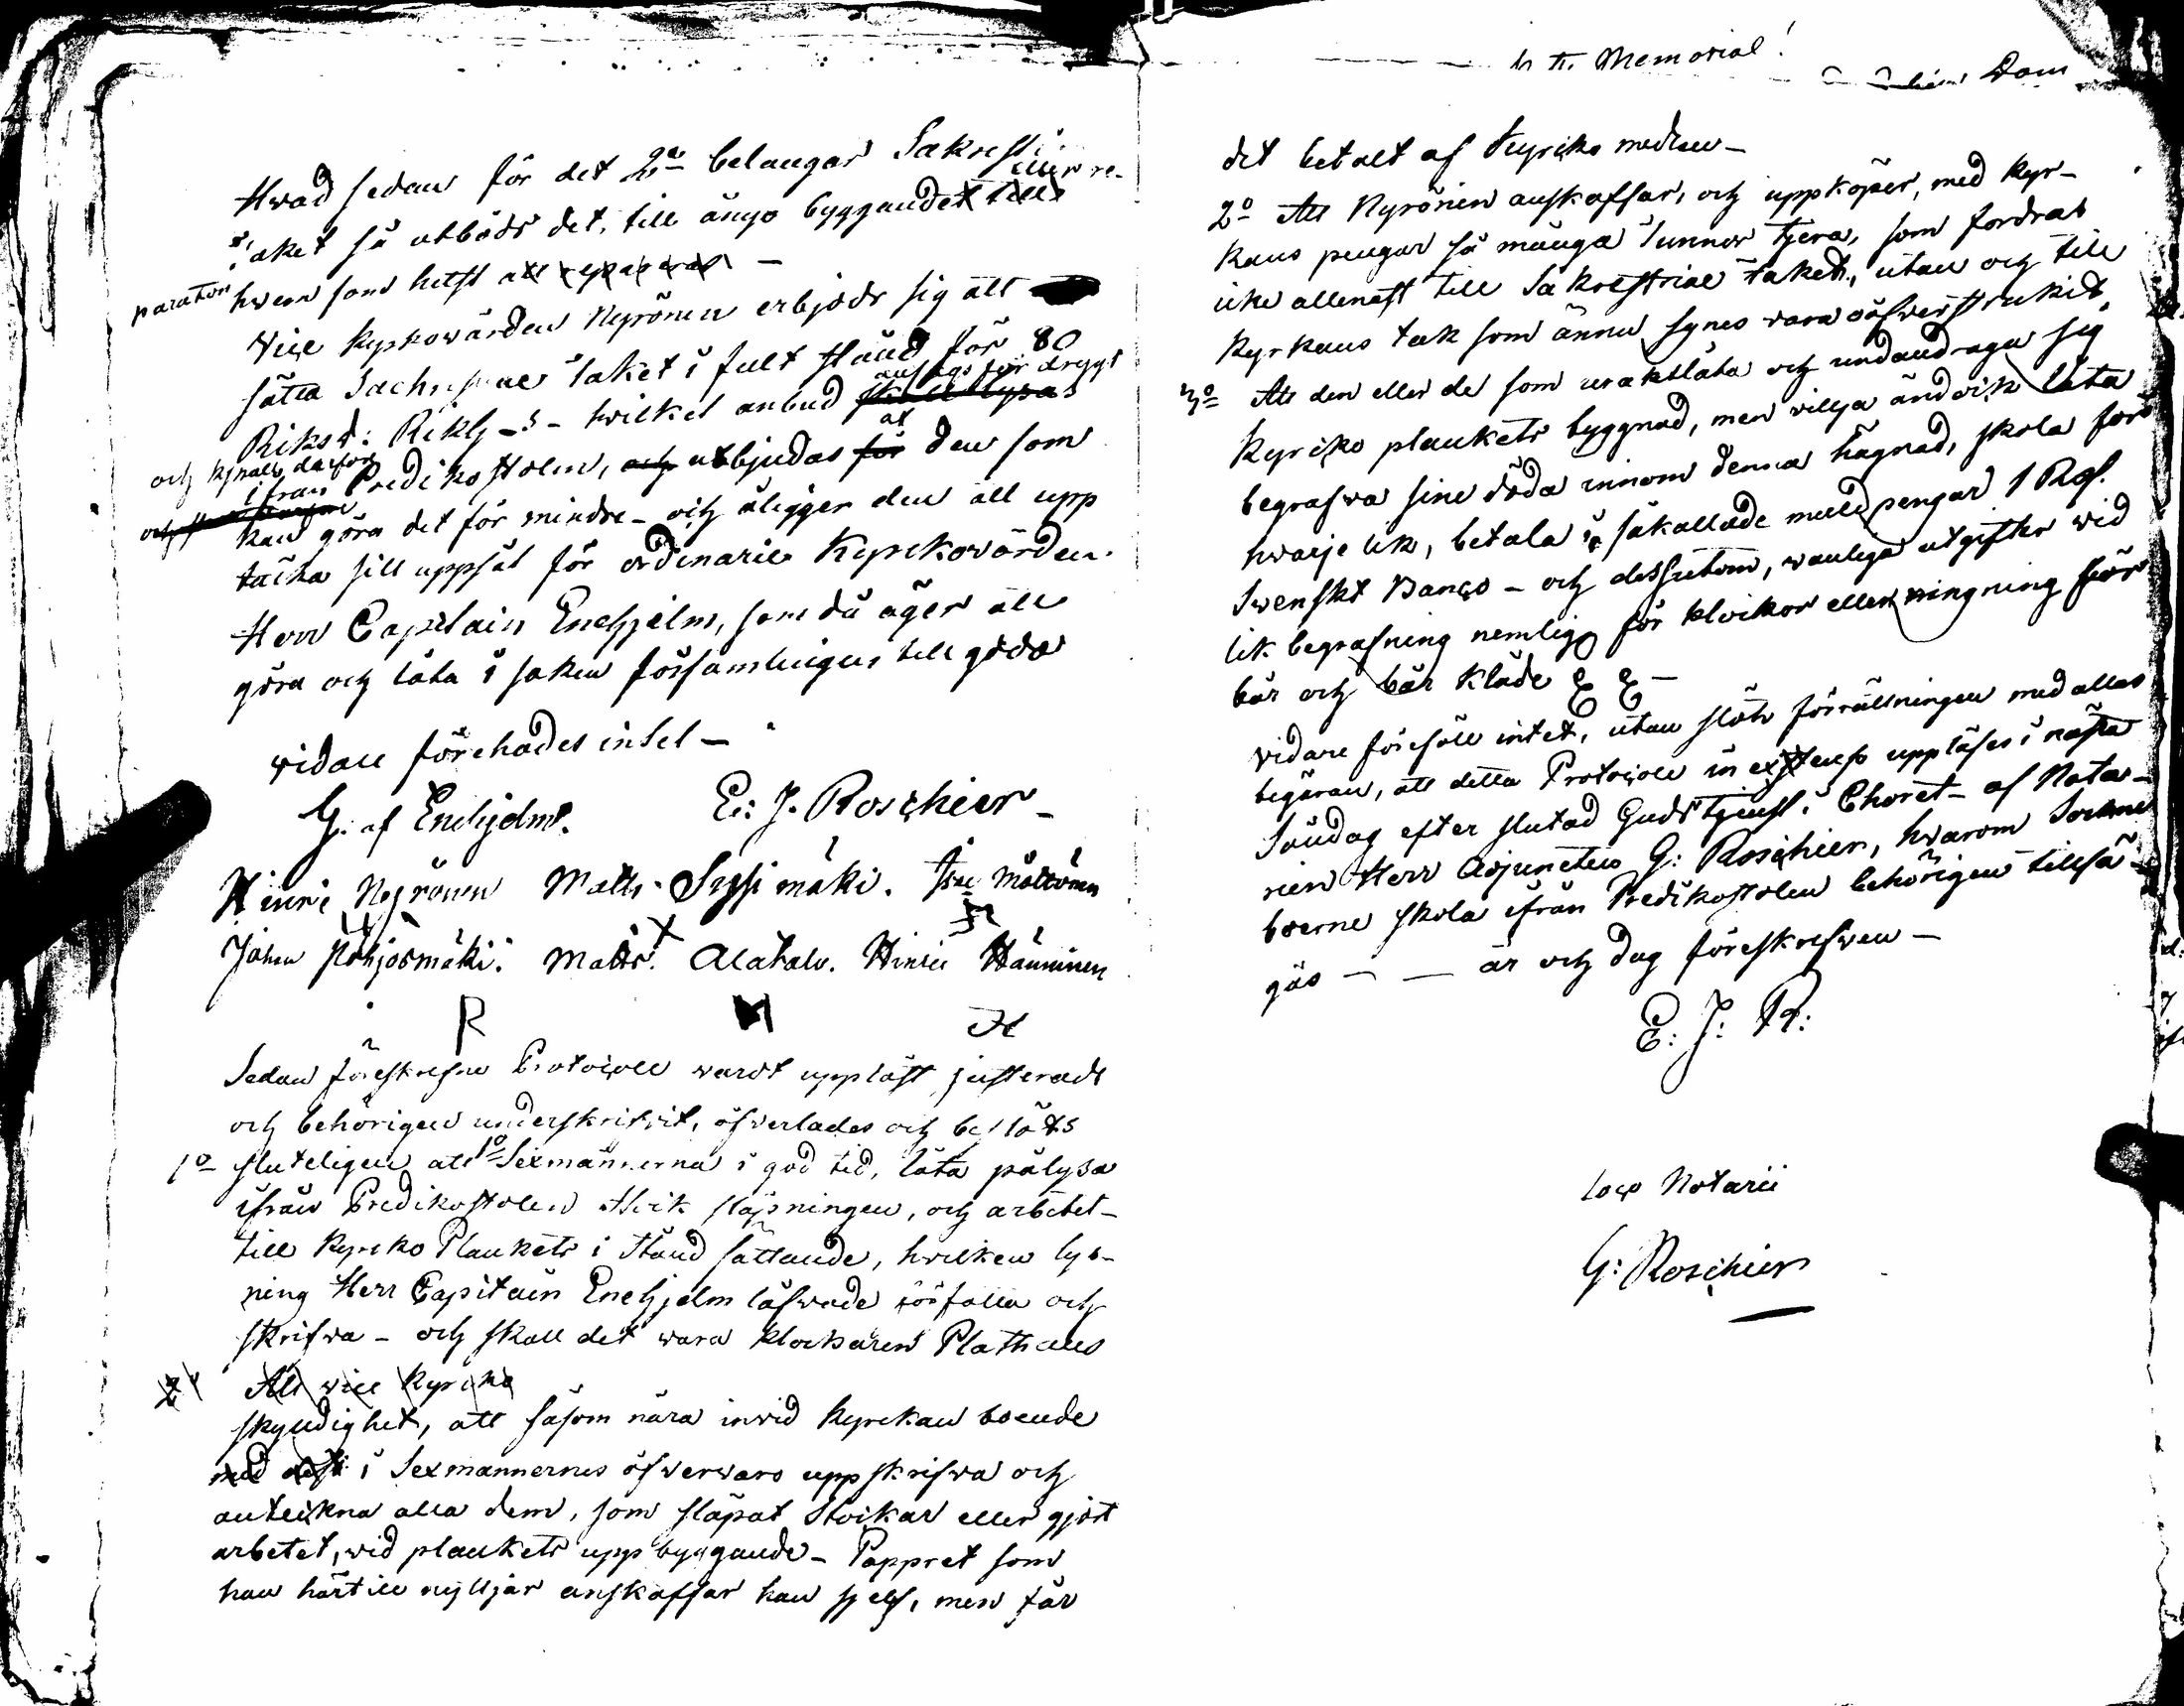 Hwad sedan för det 2a belangar Sakresti
eller re-
taket så utböds det, till ånyo byggandet till
paration hwem som helst att reparera —
Vice Kyrkowärden Nyrönen erbjöds sig att
sätta Sachristiae taket i fult stånd för 80
ansågs för drygt
Riksd: Rikhs - hwilket anbud skall lysas
och skall därför
ifrån Predikostolen, och utbjudas för at den som
kan göra det för mindre - och åligger den att upp
täcka sitt uppsåt för ordinarie Kyrckovärden
Herr Capitain Enehjelm, som då äger att
göra och låta i saken församlingen till godo
vidare förehades intet —
G. af Enehjelm. E: J. Roschier —
Hinric Nyrönen Matts Sysimäki. Isac Möttönen
Johan Pohjosmäki. Matts Alatalo. Hinric Hänninen
R M H
Sedan föreskrefne Protocoll vardt uppläst justeradt
och behörigen underskrifvit, öfverlades och beslöts
1o sluteligen att 1o Sexmännerna i god tid, låta pålysa
ifrån Predikostolen stock släpningen, och arbetet
till Kyrcko Planckets i stånd sättande, hvilken lys-
ning Herr Capitain Enehjelm låfwade författa och
skrifva - och skall det wara klockaren Plathans
2o Att vice Kyrcko
skyldighet, att såsom nära invid Kyrckan boende
med i Sexmannernes öfvervaro uppskrifva och
anteckna alla dem, som släpat stockar eller gjort
arbetet, vid planckets uppbyggande - Pappret som
han härtill nyttjar anskaffar han sjelf, men får
Memorial!
Dom
det betalt af Kyrcko medlen —
2o Att Nyrönen anskaffar, och uppköper, med Kyr-
kans pengar så många Tunnor Tjera, som fordras
icke allenast till Sakrestriae taket, utan och till
Kyrkans tak som ännu synes vara oöfverstrukit
3o Att den eller de som uraktlåta och undandraga sig
Kyrcko planckets byggnad, men villja ändock låta
begrafva sine döda innom denna hägnad, skola för
hvarje lik, betala i såkallade mull pengar 1 Rd.
Svenskt Banco - och dessutom, wanliga utgifter wid
lik begrafning nemlig för klockor eller ringning för
bår och bår kläde &c &c —
vidare föreföll intet, utan slöts förrättningen med allas
begäran, att detta Protocoll in extenso uppläses i nästa
Söndag efter slutad Gudstjenst i Choret - af Nota-
rien Herr Adjuncten G: Roschier, hvarom Sockne
boerne skola ifrån Predikostolen behörigen tillsä-
gas — — år och dag föreskrefven —
E: J: R:
loco Notarii
G: Roschier